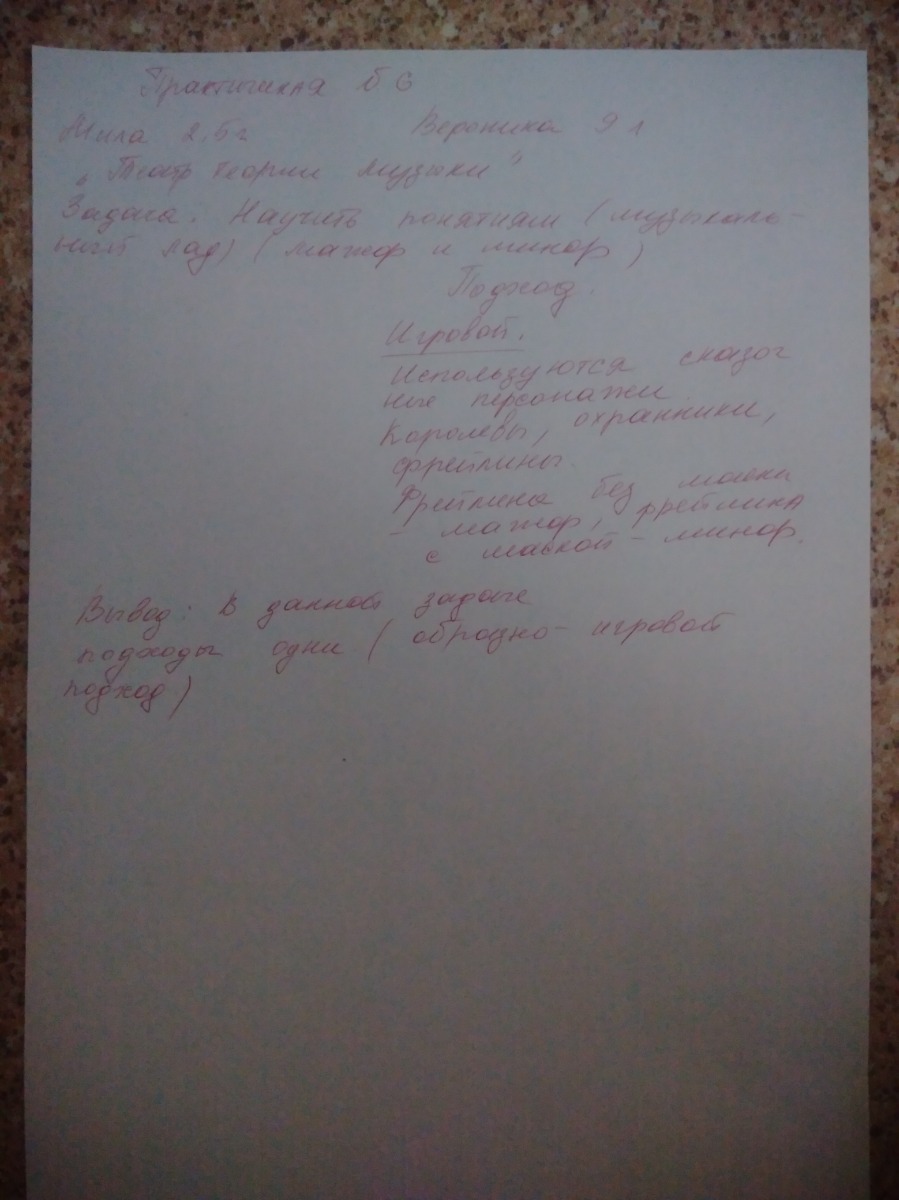 Практичная Б 6
Мила 2,5 г Вероника 9 л
"Театр теории музыки"
Задача. Научить понятиям (музыкаль-
ный лад) (мажор и минор)
Подход.
Игровой.
Используются сказоч
ные персонажи
Королевы, охранники,
фрейлины.
Фрейлина без маски
- мажор, фрейлина
с маской - минор.
Вывод: В данной задаче
подходы одни (образно-игровой
подход)